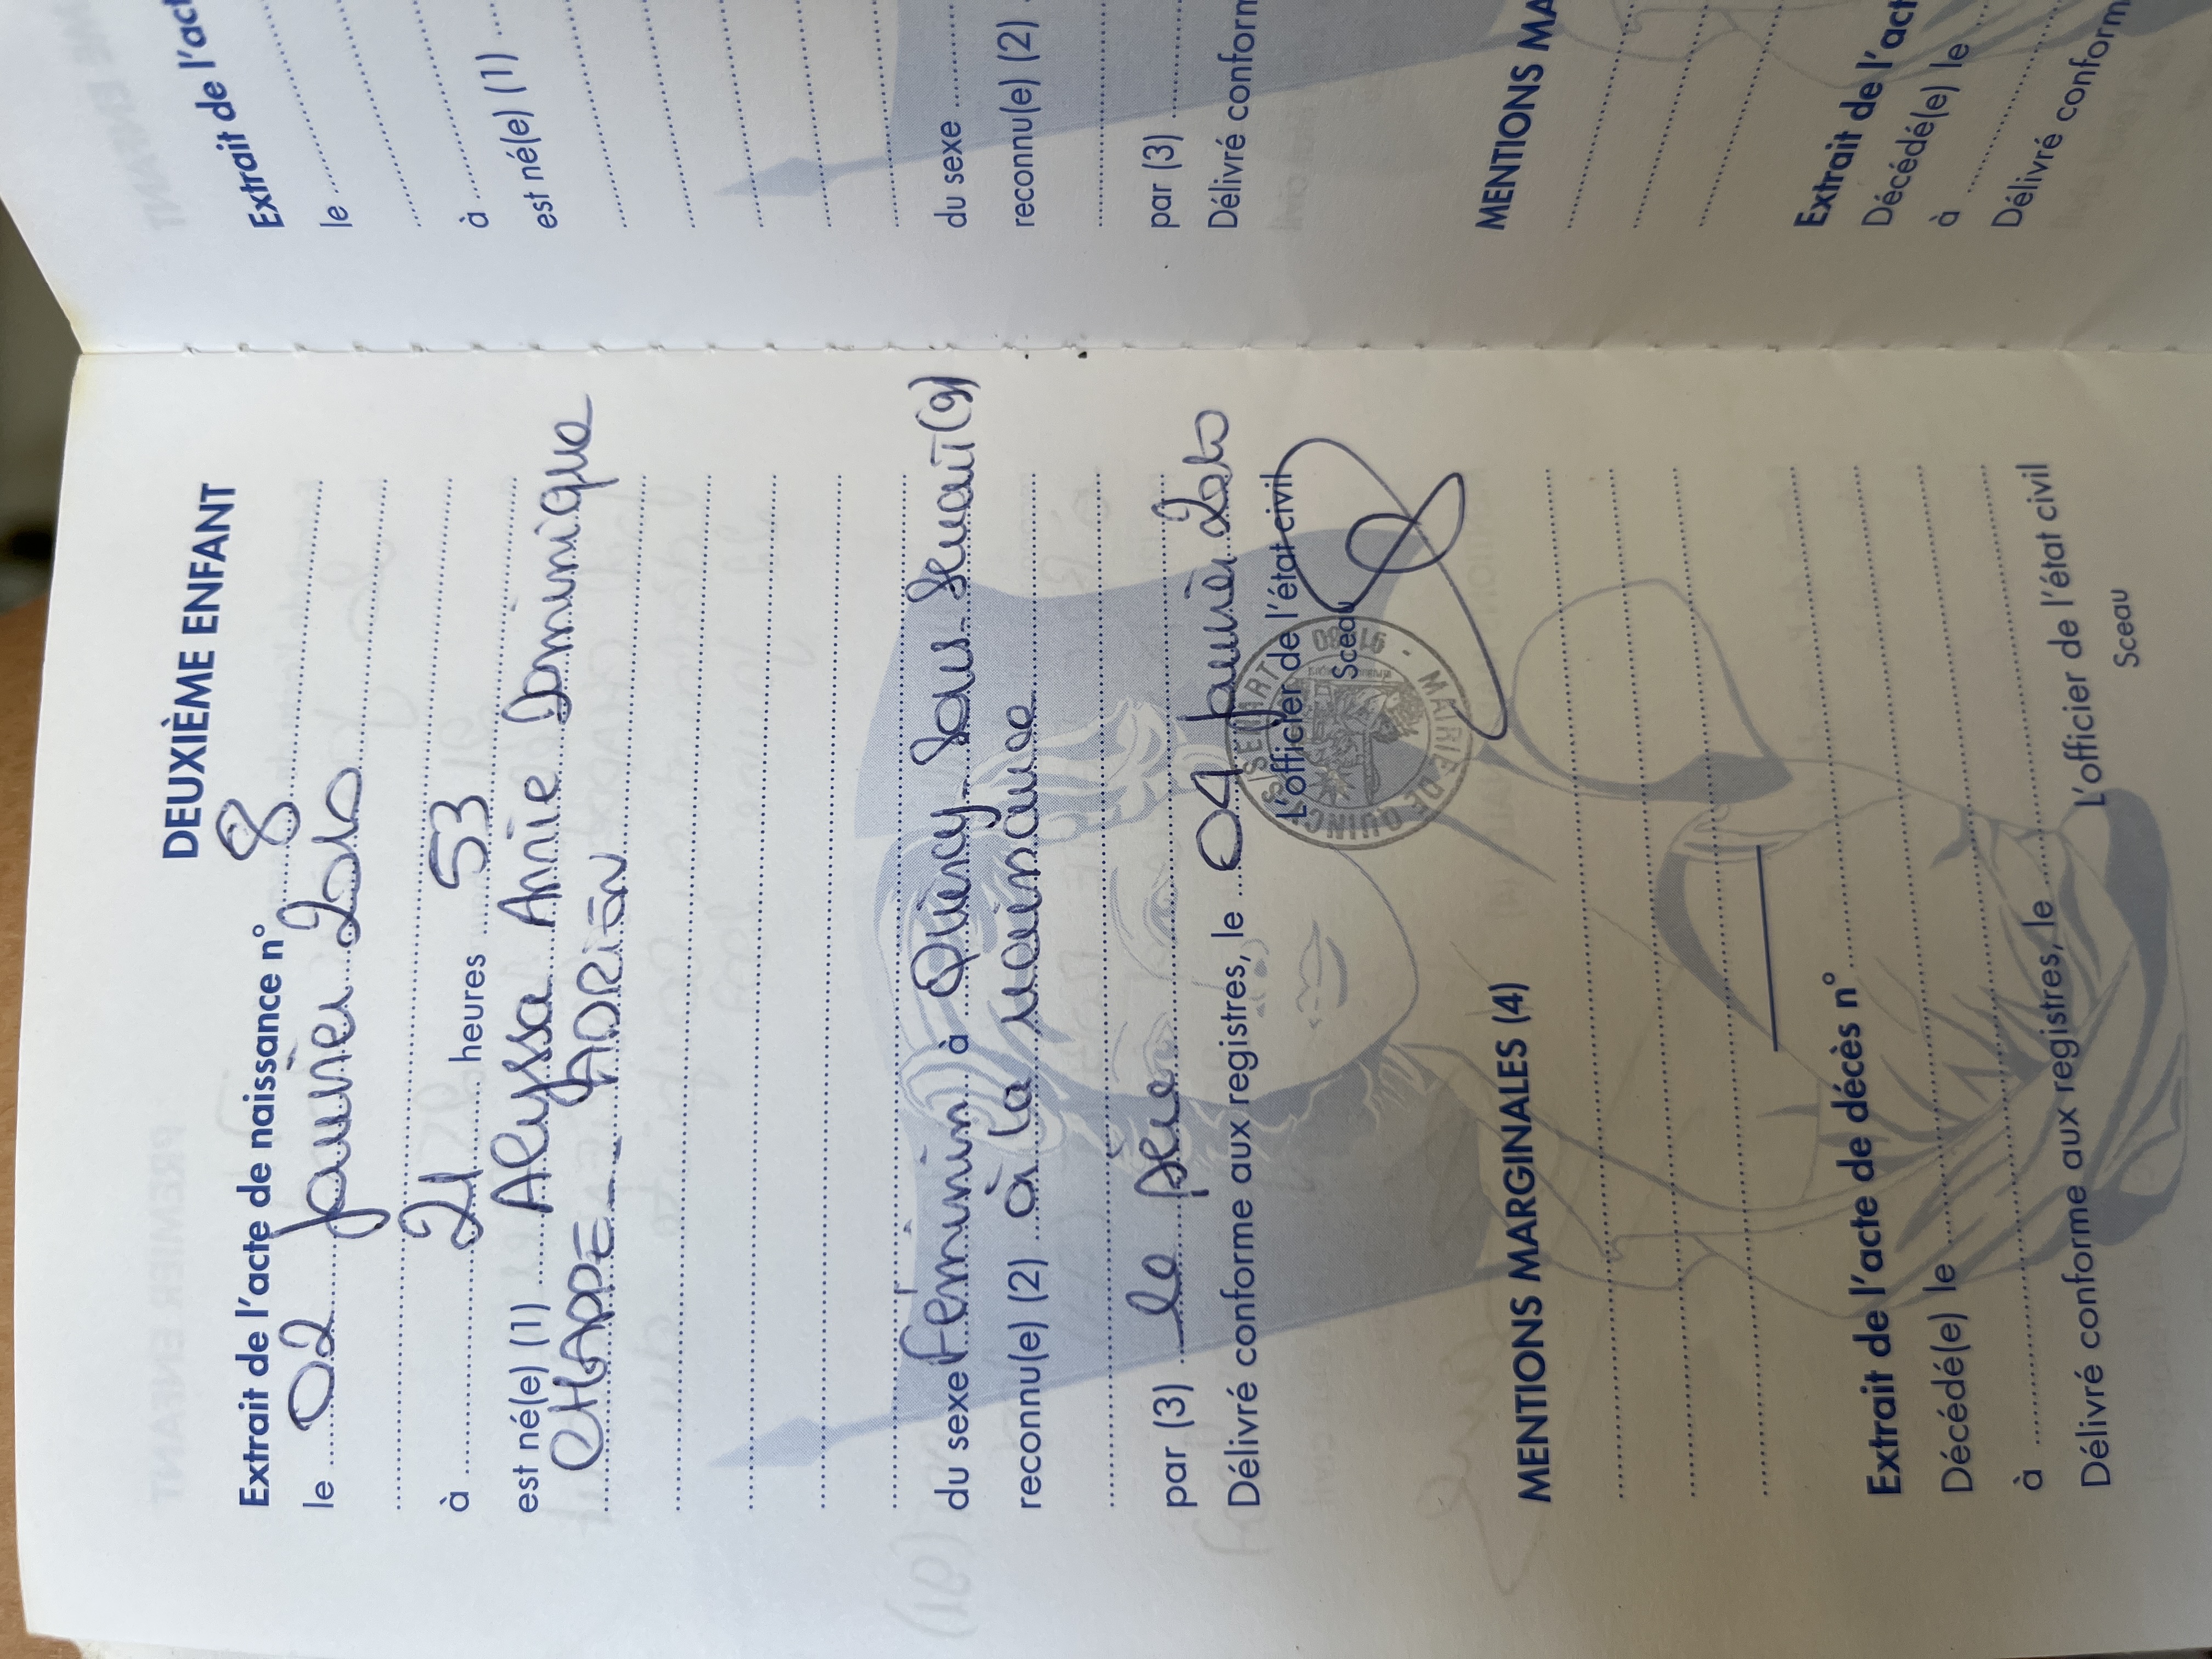 DEUXIÈME ENFANT
Extrait de l'acte de naissance n° 8
le 02 janvier 2010
à 21 heures 53
est né(e) (1) Alyssa Annie Dominique
CHAPPE ADRIEN
du sexe Féminin à Quincy-Sous-Sénart (91)
reconnu(e) (2) à la naissance
par (3) le père
Délivré conforme aux registres, le 04 janvier 2010
L'officier de l'état civil
Sceau
MAIRIE DE QUINCY S/S SENART - 91480
MENTIONS MARGINALES (4)
Extrait de l'acte de décès n°
Décédé(e) le
à
Délivré conforme aux registres, le
L'officier de l'état civil
Sceau
Extrait de l'act
le
à
est né(e) (1)
du sexe
reconnu(e) (2)
par (3)
Délivré conform
MENTIONS MA
Extrait de l'act
Décédé(e) le
à
Délivré conform